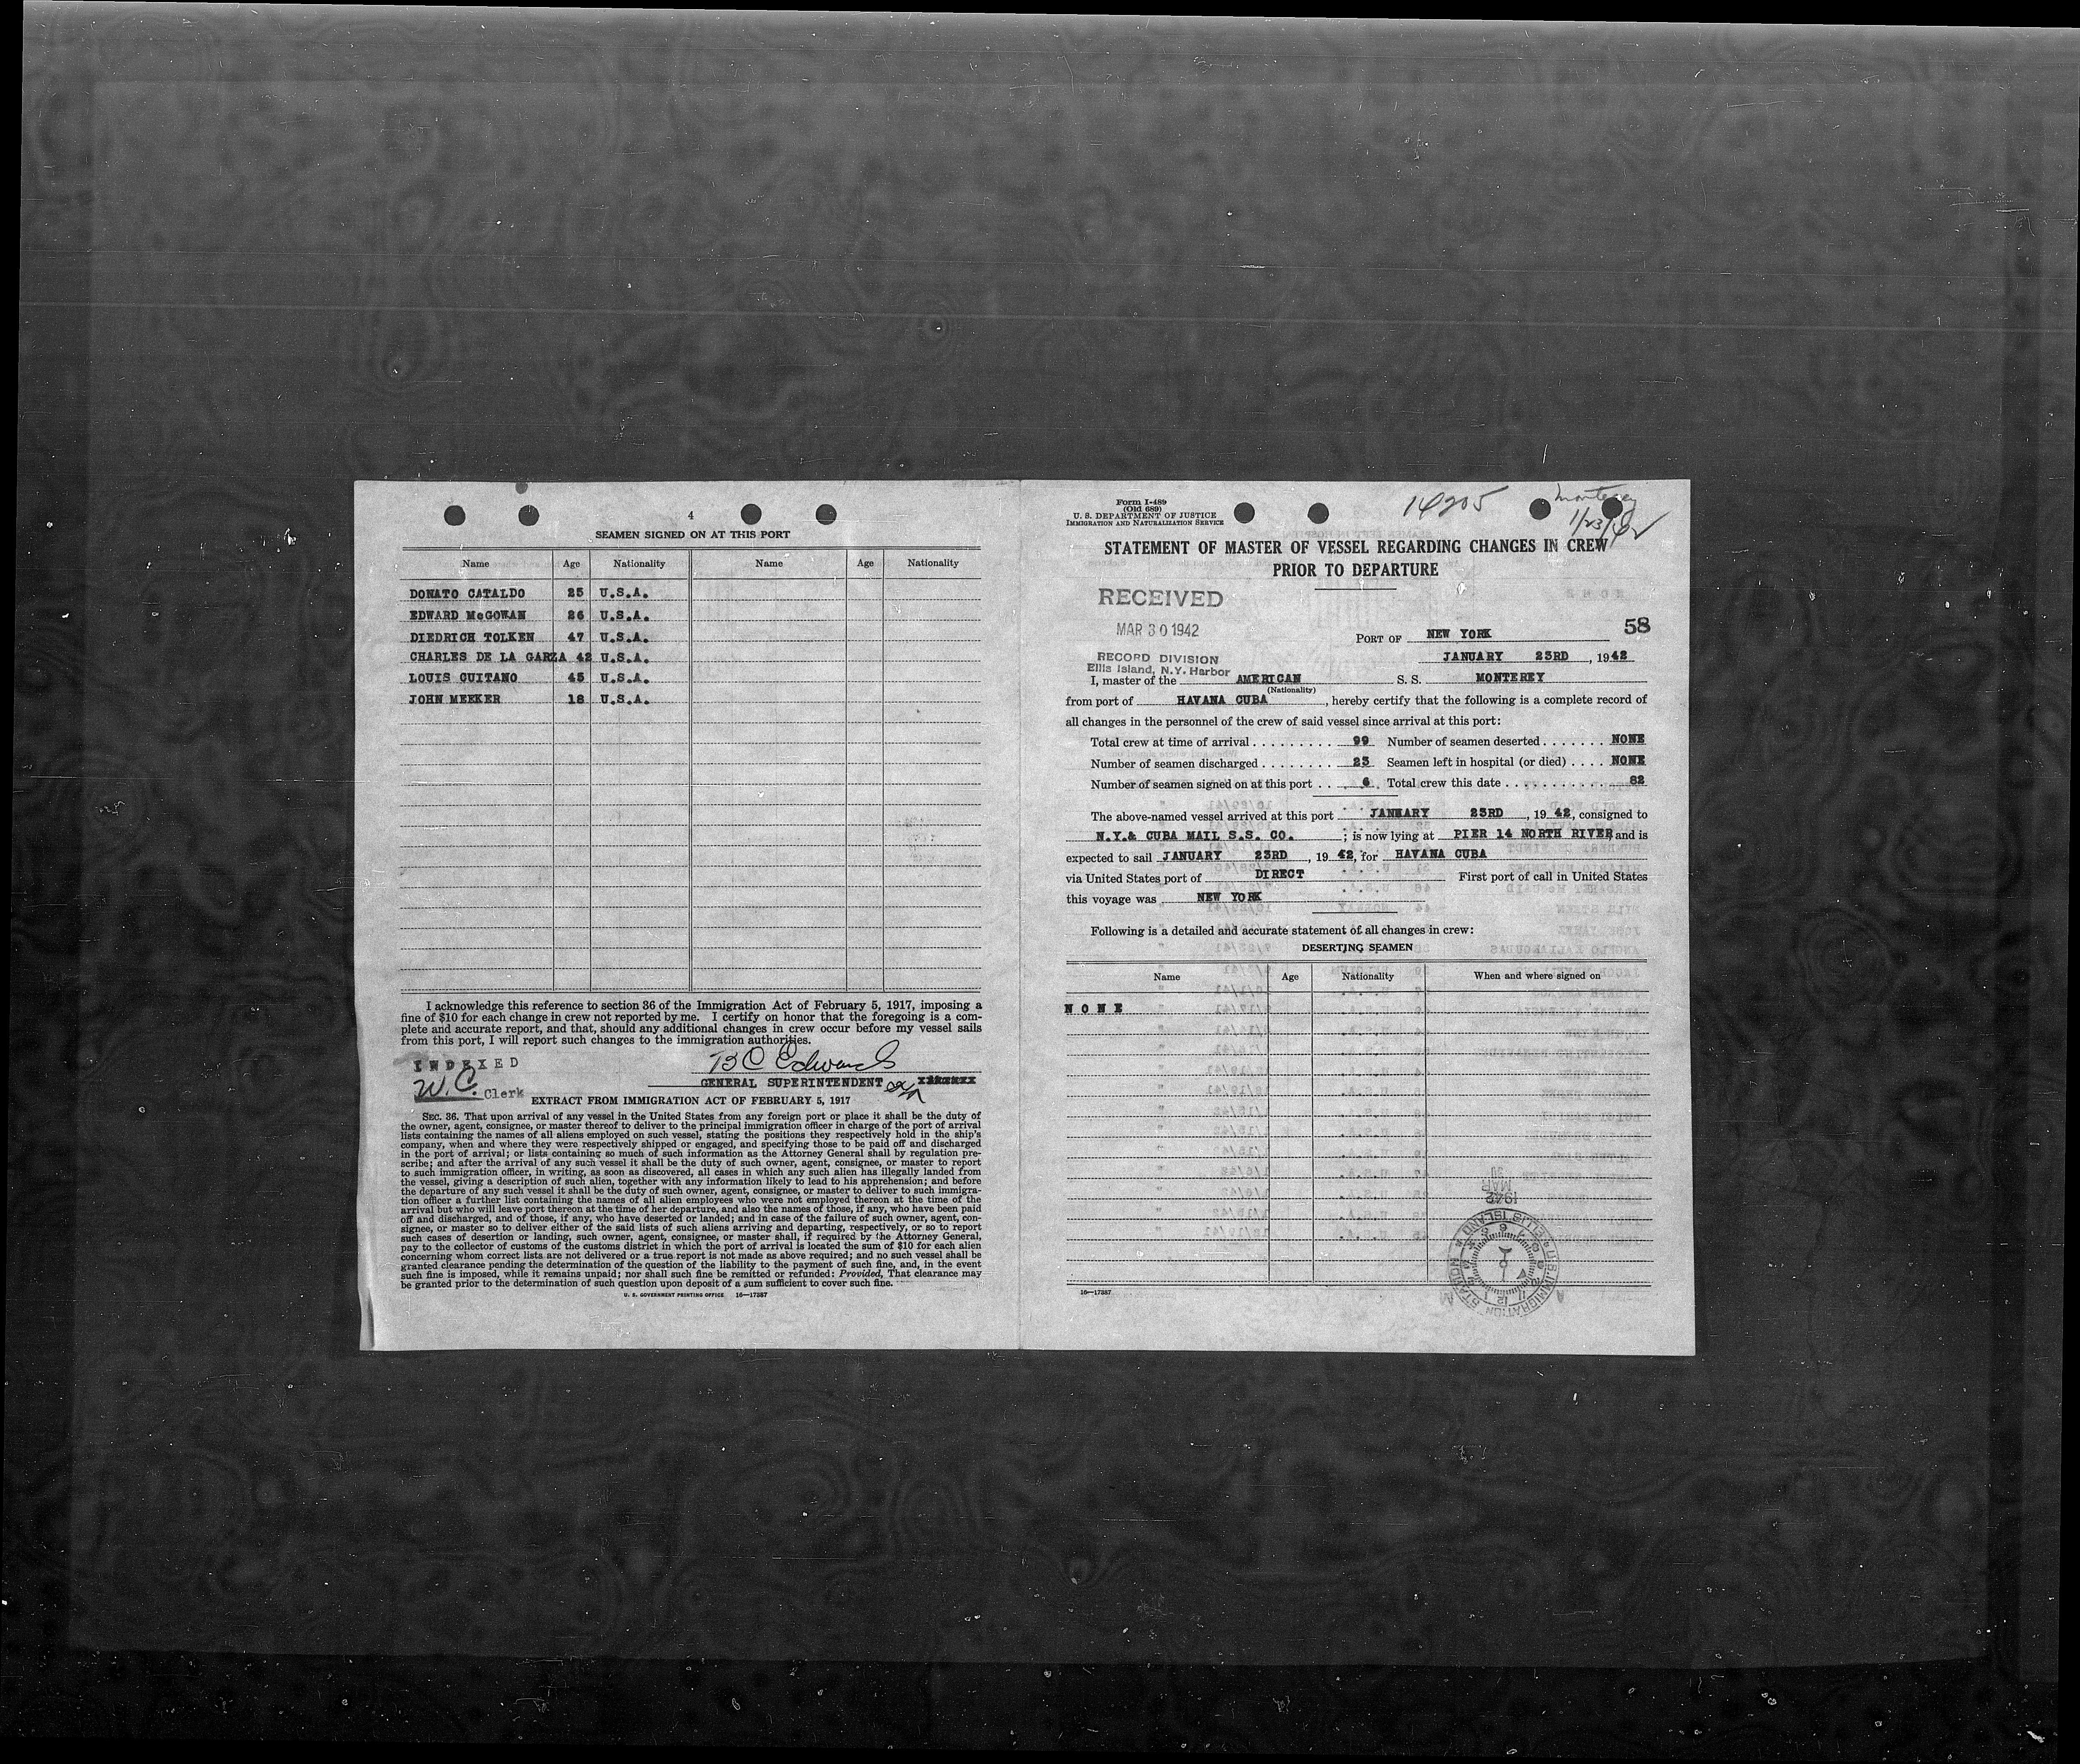 4
SEAMEN SIGNED ON AT THIS PORT
Name Age Nationality Name Age Nationality
DONATO CATALDO 25 U.S.A.
EDWARD McGOWAN 26 U.S.A.
DIEDRICH TOLKEN 47 U.S.A.
CHARLES DE LA GARZA 42 U.S.A.
LOUIS CUITANO 45 U.S.A.
JOHN MEEKER 18 U.S.A.
I acknowledge this reference to section 36 of the Immigration Act of February 5, 1917, imposing a
fine of $10 for each change in crew not reported by me. I certify on honor that the foregoing is a com-
plete and accurate report, and that, should any additional changes in crew occur before my vessel sails
from this port, I will report such changes to the immigration authorities.
INDEXED
W.C. Clerk
B C Edwards
GENERAL SUPERINTENDENT
EXTRACT FROM IMMIGRATION ACT OF FEBRUARY 5, 1917
SEC. 36. That upon arrival of any vessel in the United States from any foreign port or place it shall be the duty of
the owner, agent, consignee, or master thereof to deliver to the principal immigration officer in charge of the port of arrival
lists containing the names of all aliens employed on such vessel, stating the positions they respectively hold in the ship's
company, when and where they were respectively shipped or engaged, and specifying those to be paid off and discharged
in the port of arrival; or lists containing so much of such information as the Attorney General shall by regulation pre-
scribe; and after the arrival of any such vessel it shall be the duty of such owner, agent, consignee, or master to report
to such immigration officer, in writing, as soon as discovered, all cases in which any such alien has illegally landed from
the vessel, giving a description of such alien, together with any information likely to lead to his apprehension; and before
the departure of any such vessel it shall be the duty of such owner, agent, consignee, or master to deliver to such immigra-
tion officer a further list containing the names of all alien employees who were not employed thereon at the time of the
arrival but who will leave port thereon at the time of her departure, and also the names of those, if any, who have been paid
off and discharged, and of those, if any, who have deserted or landed; and in case of the failure of such owner, agent, con-
signee, or master so to deliver either of the said lists of such aliens arriving and departing, respectively, or so to report
such cases of desertion or landing, such owner, agent, consignee, or master shall, if required by the Attorney General,
pay to the collector of customs of the customs district in which the port of arrival is located the sum of $10 for each alien
concerning whom correct lists are not delivered or a true report is not made as above required; and no such vessel shall be
granted clearance pending the determination of the question of the liability to the payment of such fine, and, in the event
such fine is imposed, while it remains unpaid; nor shall such fine be remitted or refunded: Provided, That clearance may
be granted prior to the determination of such question upon deposit of a sum sufficient to cover such fine.
U. S. GOVERNMENT PRINTING OFFICE 16—17387
Form I-489
(Old 689)
U. S. DEPARTMENT OF JUSTICE
IMMIGRATION AND NATURALIZATION SERVICE
14205
Monterey
1/23/42
STATEMENT OF MASTER OF VESSEL REGARDING CHANGES IN CREW
PRIOR TO DEPARTURE
RECEIVED
MAR 30 1942
RECORD DIVISION
Ellis Island, N.Y. Harbor
58
PORT OF NEW YORK
JANUARY 23RD, 1942
I, master of the AMERICAN S. S. MONTEREY
(Nationality)
from port of HAVANA CUBA, hereby certify that the following is a complete record of
all changes in the personnel of the crew of said vessel since arrival at this port:
Total crew at time of arrival . . . . . . . . . 99 Number of seamen deserted . . . . . . . NONE
Number of seamen discharged . . . . . . . . 23 Seamen left in hospital (or died) . . . . NONE
Number of seamen signed on at this port . . 6 Total crew this date . . . . . . . . . . . 82
The above-named vessel arrived at this port JANUARY 23RD, 1942, consigned to
N.Y.& CUBA MAIL S.S. CO. ; is now lying at PIER 14 NORTH RIVER and is
expected to sail JANUARY 23RD, 1942, for HAVANA CUBA
via United States port of DIRECT First port of call in United States
this voyage was NEW YORK
Following is a detailed and accurate statement of all changes in crew:
DESERTING SEAMEN
Name Age Nationality When and where signed on
NONE
1942
MAR 30
U.S. IMMIGRATION STATION ELLIS ISLAND
16—17387